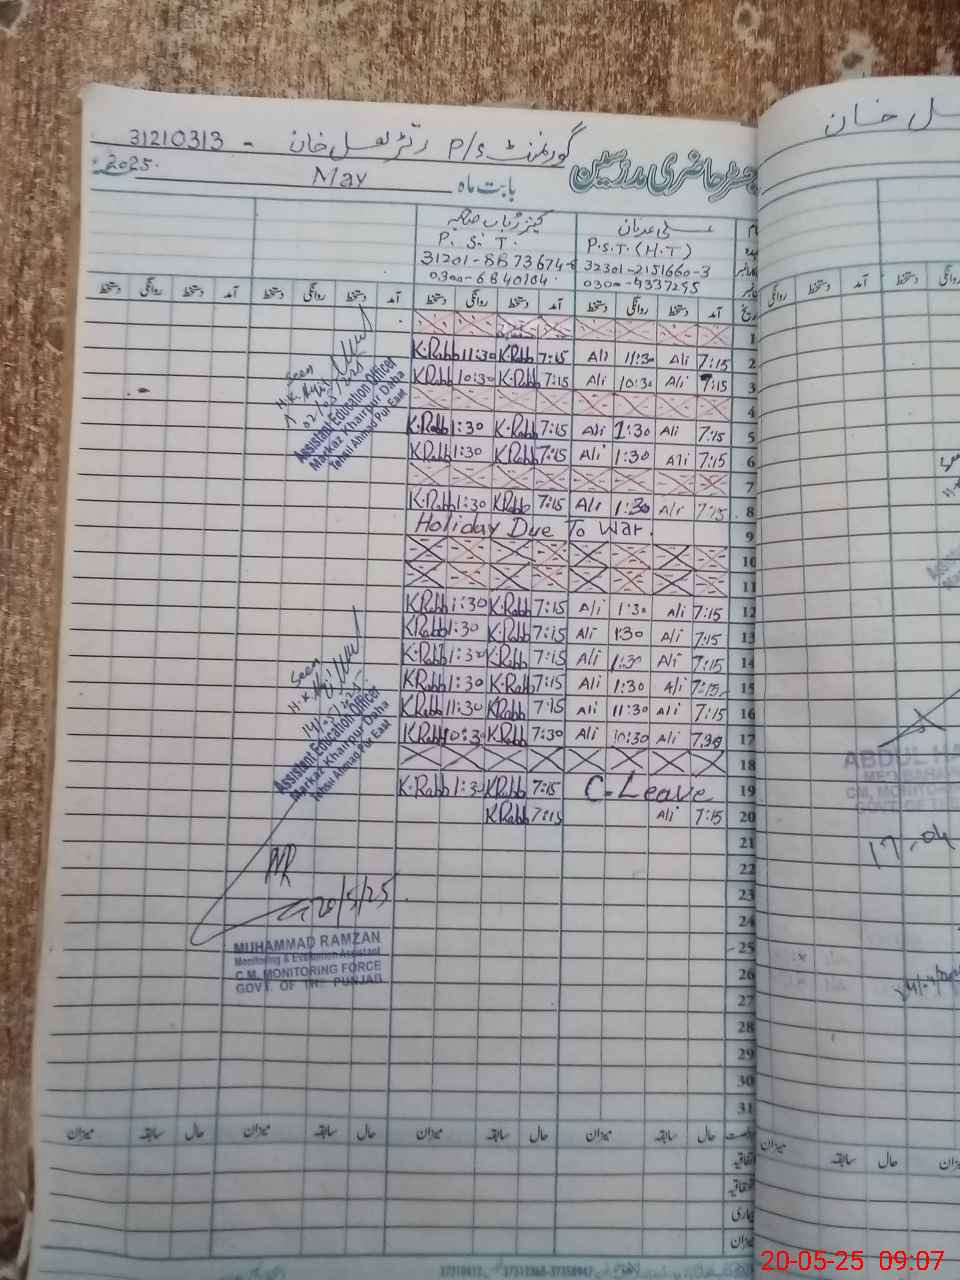 گورنمنٹ P/S رتڑ لعل خان - 31210313
رجسٹر حاضری مدرسین بابت ماہ May 2025
نام علی عدنان کنیز رباب صاحبہ
عہدہ P.S.T.(H.T) P.S.T.
32301-2151660-3 31201-8873674-8
0300-4337295 0300-6840104
تاریخ آمد دستخط روانگی دستخط آمد دستخط روانگی دستخط آمد دستخط روانگی دستخط آمد دستخط روانگی دستخط
1
2 7:15 Ali 11:30 Ali 7:15 K.Rabb 11:30 K.Rabb
3 7:15 Ali 10:30 Ali 7:15 K.Rabb 10:30 K.Rabb
4
5 7:15 Ali 1:30 Ali 7:15 K.Rabb 1:30 K.Rabb
6 7:15 Ali 1:30 Ali 7:15 K.Rabb 1:30 K.Rabb
7
8 7:15 Ali 1:30 Ali 7:15 K.Rabb 1:30 K.Rabb
9 Holiday Due To War.
10
11
12 7:15 Ali 1:30 Ali 7:15 K.Rabb 1:30 K.Rabb
13 7:15 Ali 1:30 Ali 7:15 K.Rabb 1:30 K.Rabb
14 7:15 Ali 1:30 Ali 7:15 K.Rabb 1:30 K.Rabb
15 7:15 Ali 1:30 Ali 7:15 K.Rabb 1:30 K.Rabb
16 7:15 Ali 11:30 Ali 7:15 K.Rabb 11:30 K.Rabb
17 7:30 Ali 10:30 Ali 7:30 K.Rabb 10:30 K.Rabb
18
19 C-Leave 7:15 K.Rabb 1:30 K.Rabb
20 7:15 Ali 7:15 K.Rabb
21
22
23
24
25
26
27
28
29
30
31
Seen
Assistant Education Officer
Markaz Khairpur Daha
Tehsil Ahmad Pur East
Seen
Assistant Education Officer
Markaz Khairpur Daha
Tehsil Ahmad Pur East
20/5/25
MUHAMMAD RAMZAN
Monitoring & Evaluation Assistant
C.M. MONITORING FORCE
GOVT. OF THE PUNJAB
حال سابقہ میزان حال سابقہ میزان حال سابقہ میزان حال سابقہ میزان
اتفاقیہ
بیماری
میزان
خان
ABDUL
17-04
20-05-25 09:07